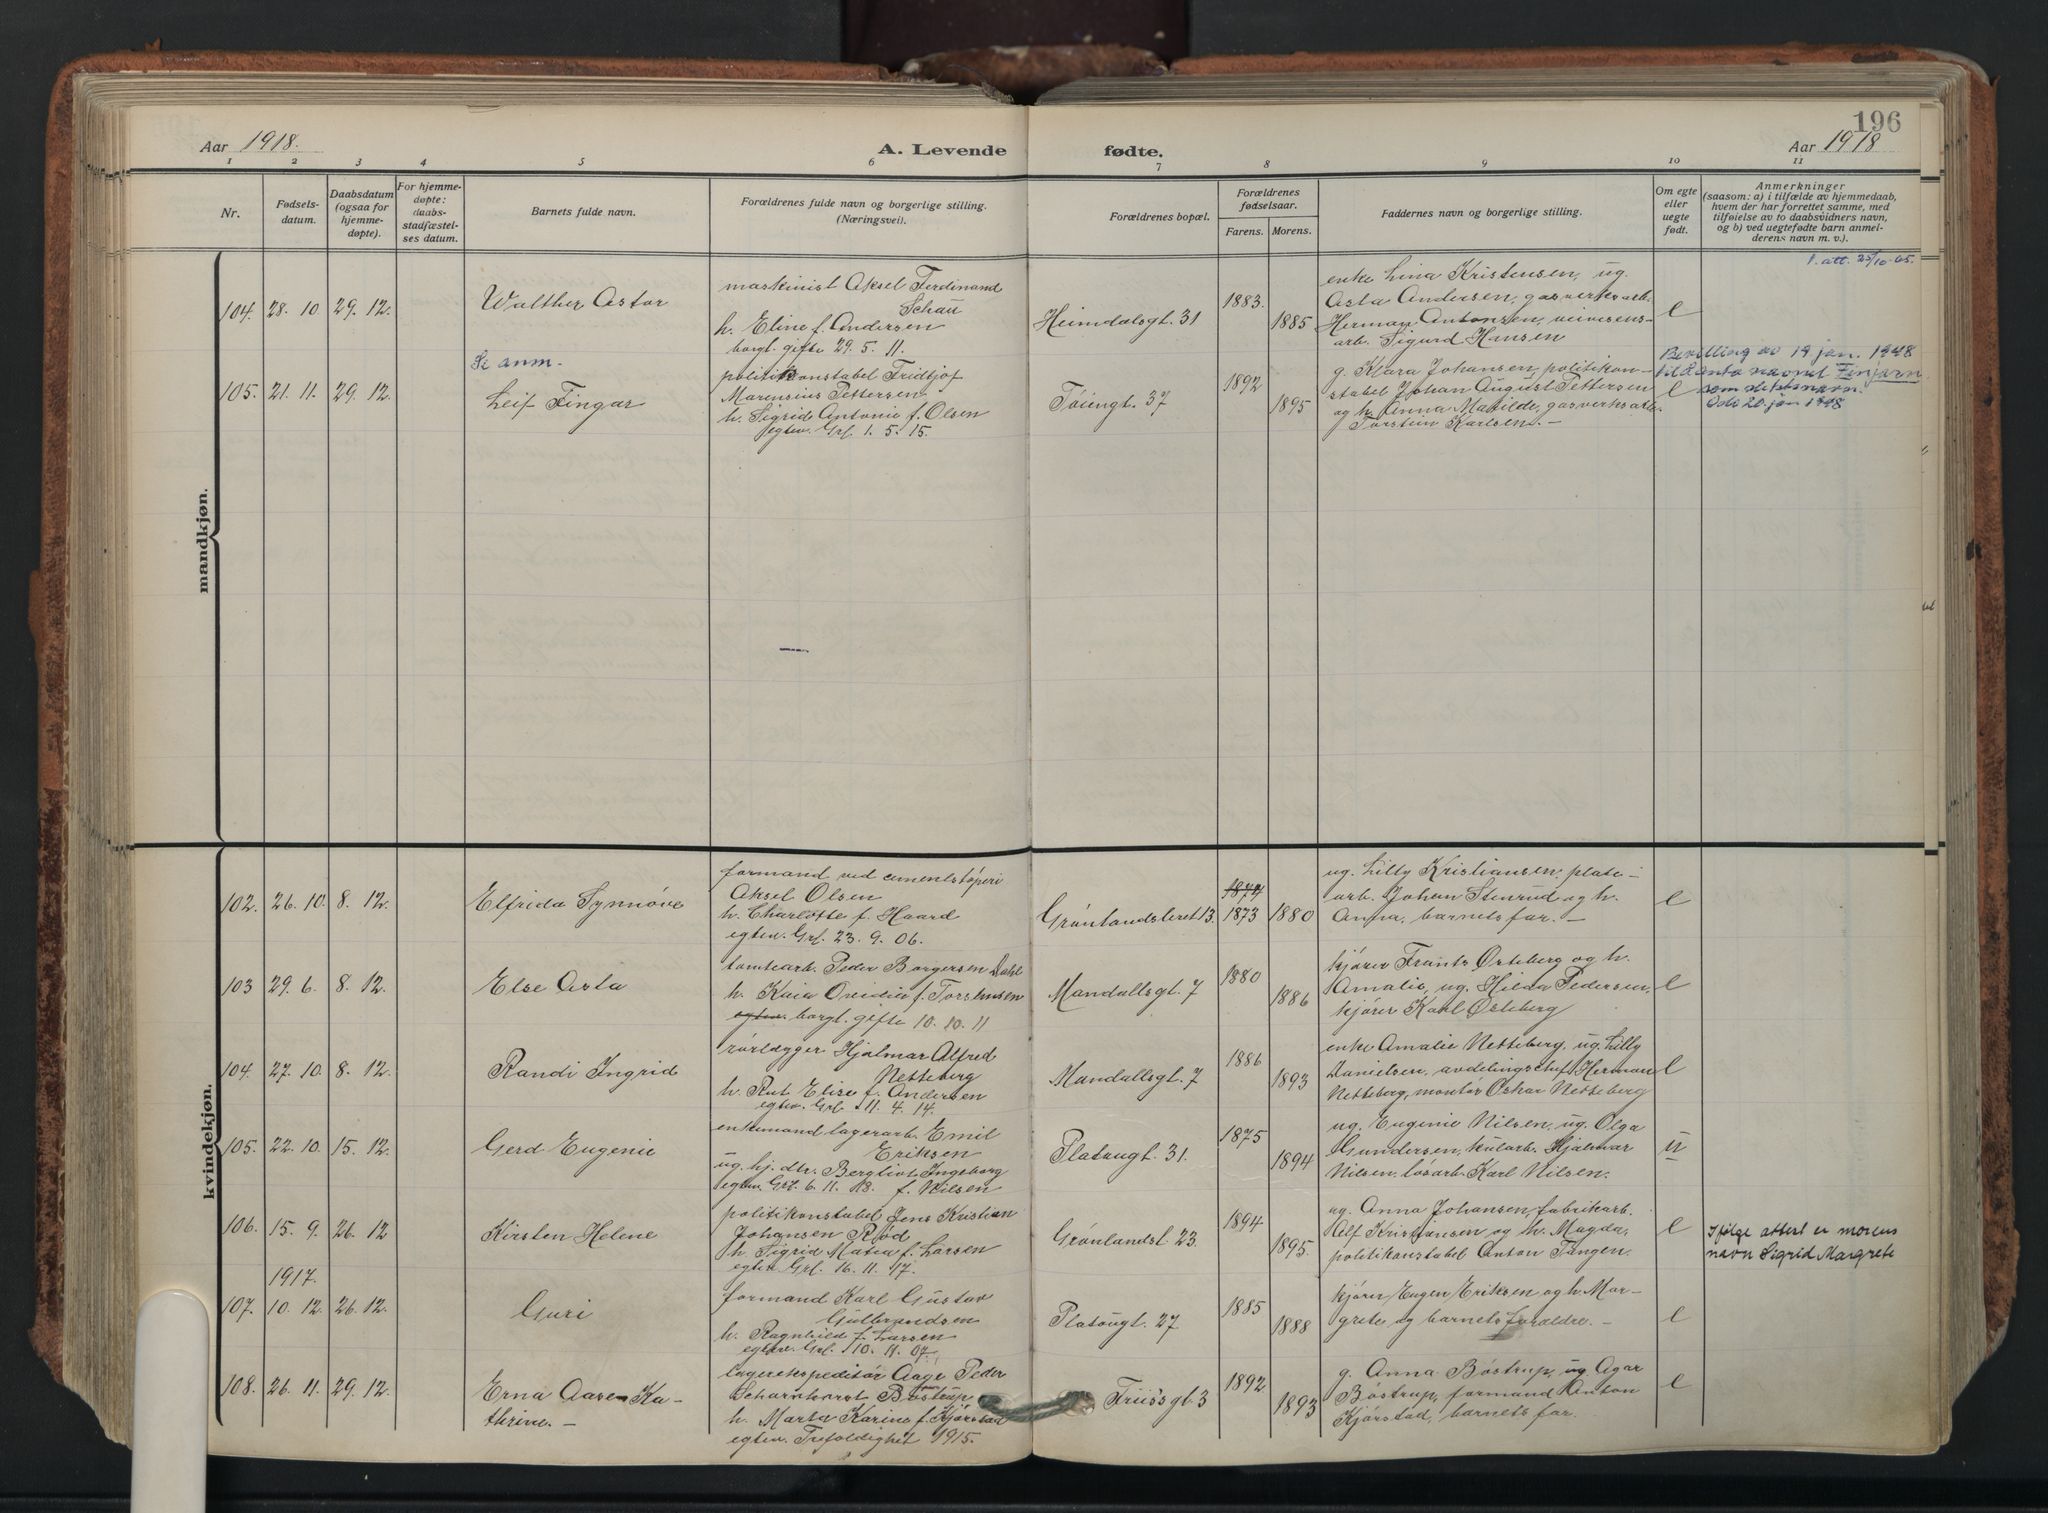 196
Aar 1918.
A. Levende fødte.
Aar 1918
1 2 3 4 5 6 7 8 9 10 11
Nr.
Fødsels-
datum.
Daabsdatum
(ogsaa for
hjemme-
døpte).
For hjemme-
døpte:
daabs-
stadfæstel-
ses datum.
Barnets fulde navn.
Forældrenes fulde navn og borgerlige stilling.
(Næringsvei).
Forældrenes bopæl.
Forældrenes
fødselsaar.
Farens. Morens.
Faddernes navn og borgerlige stilling.
Om egte
eller
uegte
født.
Anmerkninger
(saasom: a) i tilfælde av hjemmedaab,
hvem der har forrettet samme, med
tilføielse av to daabsvidners navn,
og b) ved uegtefødte barn anmel-
derens navn m. v.).
mandkjøn.
104. 28. 10. 29. 12.
Walther Astor
maskinist Aksel Ferdinand
Schau
h. Eline f. Andersen
borgl. gifte 29. 5. 11.
Heimdalsgt. 31
1883.
1885
enke Lina Kristensen, ug.
Asta Andersen, gasverksarb.
Herman Antonsen, veivesens-
arb. Sigurd Hansen
e
att. 25/10-65.
105. 21. 11. 29. 12.
Se anm.
Leif Fingar
politikonstabel Fridtjof
Marensius Pettersen
h. Sigrid Antonie f. Olsen
egtev. Grl. 1. 5. 15.
Tøiengt. 37
1892
1895
g. Klara Johansen, politikon-
stabel Johan August Pettersen
og h. Anna Matilde, gasverksarb.
Torstein Karlsen. -
e
Bevilling av 19 jan. 1948
til å anta navnet Finjarn
som slektsnavn.
Oslo 20 jan 1948
kvindekjøn.
102. 26. 10. 8. 12.
Elfrida Synnøve
formand ved cementstøperi
Aksel Olsen
h. Charlotte f. Haard
egtev. Grl. 23. 9. 06.
Grønlandsleret 13.
1874
1873 1880
ug. Lilly Kristiansen, plate-
arb. Johan Stenrud og h.
Anna, barnets far. -
e
103 29. 6. 8. 12.
Else Asta
tomtearb. Peder Borgersen Dahl
h. Kaia Ovidia f. Torstensen
egtev. borgl. gifte 10. 10. 11
Mandallsgt. 7
1880
1886
kjører Frantz Østeberg og h.
Amalie, ug. Hilda Pedersen,
kjører Karl Østeberg
e
104. 27. 10. 8. 12.
Randi Ingrid
rørlægger Hjalmar Alfred
Netteberg
h. Rut Elise f. Andersen
egtev. Grl. 11. 4. 14.
Mandallsgt. 7
1886
1893
enke Amalie Netteberg, ug. Lilly
Danielsen, avdelingschef Herman
Netteberg, montør Oskar Netteberg
e
105. 22. 10. 15. 12.
Gerd Eugenie
enkemand lagerarb. Emil
Eriksen
ug. hj. dtr. Bergliot Ingeborg
egtev. Grl. 6. 11. 18. f. Nilsen
Platougt. 31.
1875
1894
ug. Eugenie Nilsen, ug. Olga
Gundersen, kularb. Hjalmar
Nilsen, løsarb. Karl Nilsen.
u
106. 15. 9. 26. 12
Kirsten Helene
politikonstabel Jens Kristian
Johansen Rød
h. Sigrid Maria f. Larsen
egtev. Grl. 16. 11. 17.
Grønlandst. 23.
1894
1895.
ug. Anna Johansen, fabrikarb.
Alf Kristiansen og h. Magda,
politikonstabel Anton Tangen.
e
Ifølge attest er morens
navn Sigrid Margrete
1917.
107. 10. 12. 26. 12.
Guri
formand Karl Gustav
Gulbrandsen
h. Ragnhild f. Larsen
egtev. Grl. 10. 11. 07.
Platougt. 27
1885
1888
kjører Eugen Eriksen og h. Mar-
grete og barnets foraldre. -
e
108. 26. 11. 29. 12.
Erna Aase Ka-
thrine. -
lagerekspeditør Aage Peder
Scharnhorst Bøstrup
h. Marta Karine f. Kjørstad
egtev. Trefoldighet 1915.
Friisgt. 3
1892
1893
g. Anna Bøstrup, ug Agar
Bøstrup, formand Anton
Kjørstad, barnets far.
e